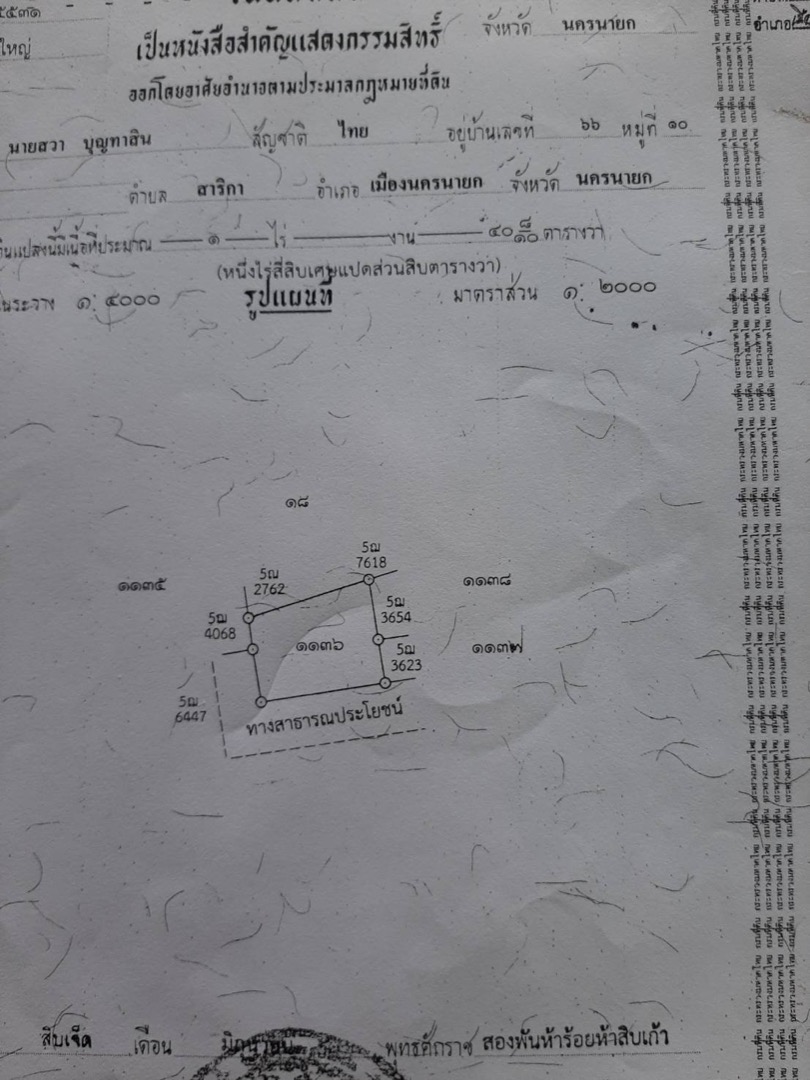 ๕๕๓๑
ใหญ่
จังหวัด นครนายก
อำเภอ
เป็นหนังสือสำคัญแสดงกรรมสิทธิ์
ออกโดยอาศัยอำนาจตามประมวลกฎหมายที่ดิน
นายสวา บุญทาสิน สัญชาติ ไทย อยู่บ้านเลขที่ ๖๖ หมู่ที่ ๑๐
ตำบล สาริกา อำเภอ เมืองนครนายก จังหวัด นครนายก
ดินแปลงนี้มีเนื้อที่ประมาณ ๑ ไร่ งาน ๔๐ ๘/๑๐ ตารางวา
(หนึ่งไร่สี่สิบเศษแปดส่วนสิบตารางวา)
ในระวาง ๑: ๔๐๐๐ รูปแผนที่ มาตราส่วน ๑: ๒๐๐๐
๑๘
5ฌ
7618
๑๑๓๕
5ฌ
2762
๑๑๓๘
5ฌ
3654
5ฌ
4068
๑๑๓๖
5ฌ
3623
๑๑๓๗
5ฌ
6447
ทางสาธารณประโยชน์
สิบเจ็ด เดือน มิถุนายน พุทธศักราช สองพันห้าร้อยห้าสิบเก้า